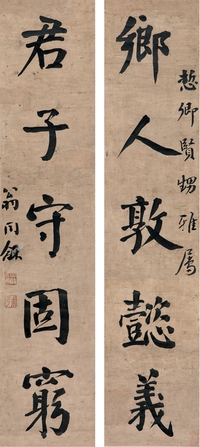 慤卿賢甥雅屬
鄉人敦懿義
君子守固窮
翁同龢